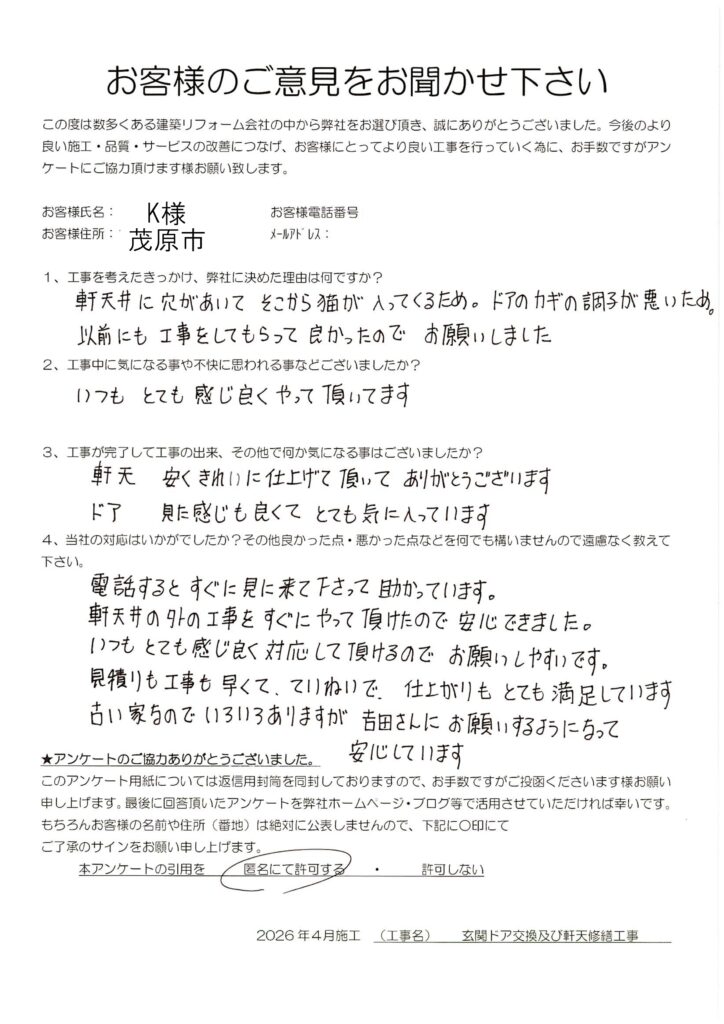 お客様のご意見をお聞かせ下さい
この度は数多くある建築リフォーム会社の中から弊社をお選び頂き、誠にありがとうございました。今後のより
良い施工・品質・サービスの改善につなげ、お客様にとってより良い工事を行っていく為に、お手数ですがアン
ケートにご協力頂けます様お願い致します。
お客様氏名： K様 お客様電話番号
お客様住所： 茂原市 ﾒｰﾙｱﾄﾞﾚｽ：
１、工事を考えたきっかけ、弊社に決めた理由は何ですか？
軒天井に穴があいて そこから猫が 入ってくるため。ドアのカギの調子が悪いため。
以前にも 工事をしてもらって 良かったので お願いしました
２、工事中に気になる事や不快に思われる事などございましたか？
いつも とても 感じ良く やって 頂いてます
３、工事が完了して工事の出来、その他で何か気になる事はございましたか？
軒天 安く きれいに 仕上げて 頂いて ありがとうございます
ドア 見た感じも 良くて とても 気に入っています
４、当社の対応はいかがでしたか？その他良かった点・悪かった点などを何でも構いませんので遠慮なく教えて
下さい。
電話すると すぐに 見に 来て 下さって 助かっています。
軒天井の外の工事を すぐに やって 頂けたので 安心できました。
いつも とても 感じ良く 対応して 頂けるので お願いしやすいです。
見積りも 工事も 早くて、ていねいで、 仕上がりも とても 満足しています
古い家なので いろいろありますが 吉田さんに お願いするようになって
安心しています
★アンケートのご協力ありがとうございました。
このアンケート用紙については返信用封筒を同封しておりますので、お手数ですがご投函くださいます様お願い
申し上げます。最後に回答頂いたアンケートを弊社ホームページ・ブログ等で活用させていただければ幸いです。
もちろんお客様の名前や住所（番地）は絶対に公表しませんので、下記に〇印にて
ご了承のサインをお願い申し上げます。
本アンケートの引用を 匿名にて許可する ・ 許可しない
2026年4月施工 （工事名） 玄関ドア交換及び軒天修繕工事